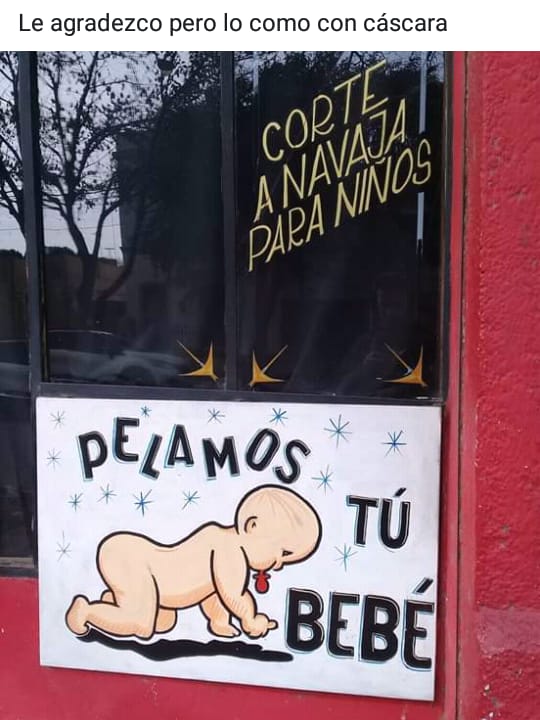 Le agradezco pero lo como con cáscara
CORTE
A NAVAJA
PARA NIÑOS
PELAMOS
TÚ
BEBÉ